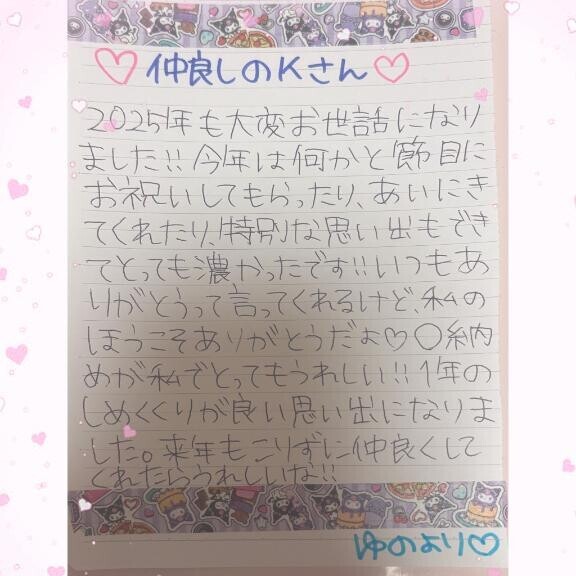 ♡仲良しのKさん♡
2025年も大変お世話になり
ました!!今年は何かと節目に
お祝いしてもらったり、あいにき
てくれたり、特別な思い出もでき
てとっても濃かったです!!いつもあ
りがとうって言ってくれるけど、私の
ほうこそありがとうだよ♡〇納
めが私でとってもうれしい!!1年の
しめくくりが良い思い出になりま
した。来年もこりずに仲良くして
くれたらうれしいな!!
ゆのより♡